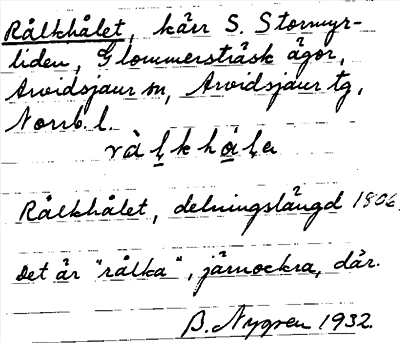 Rålkhålet, kärr S. Stormyr-
liden, Glommersträsk ägor,
Arvidsjaur sn, Arvidsjaur tg,
Norrb. l.
Rålkhålet, delningslängd 1806.
Det är "rålka", järnockra, där.
B. Nygren 1932.